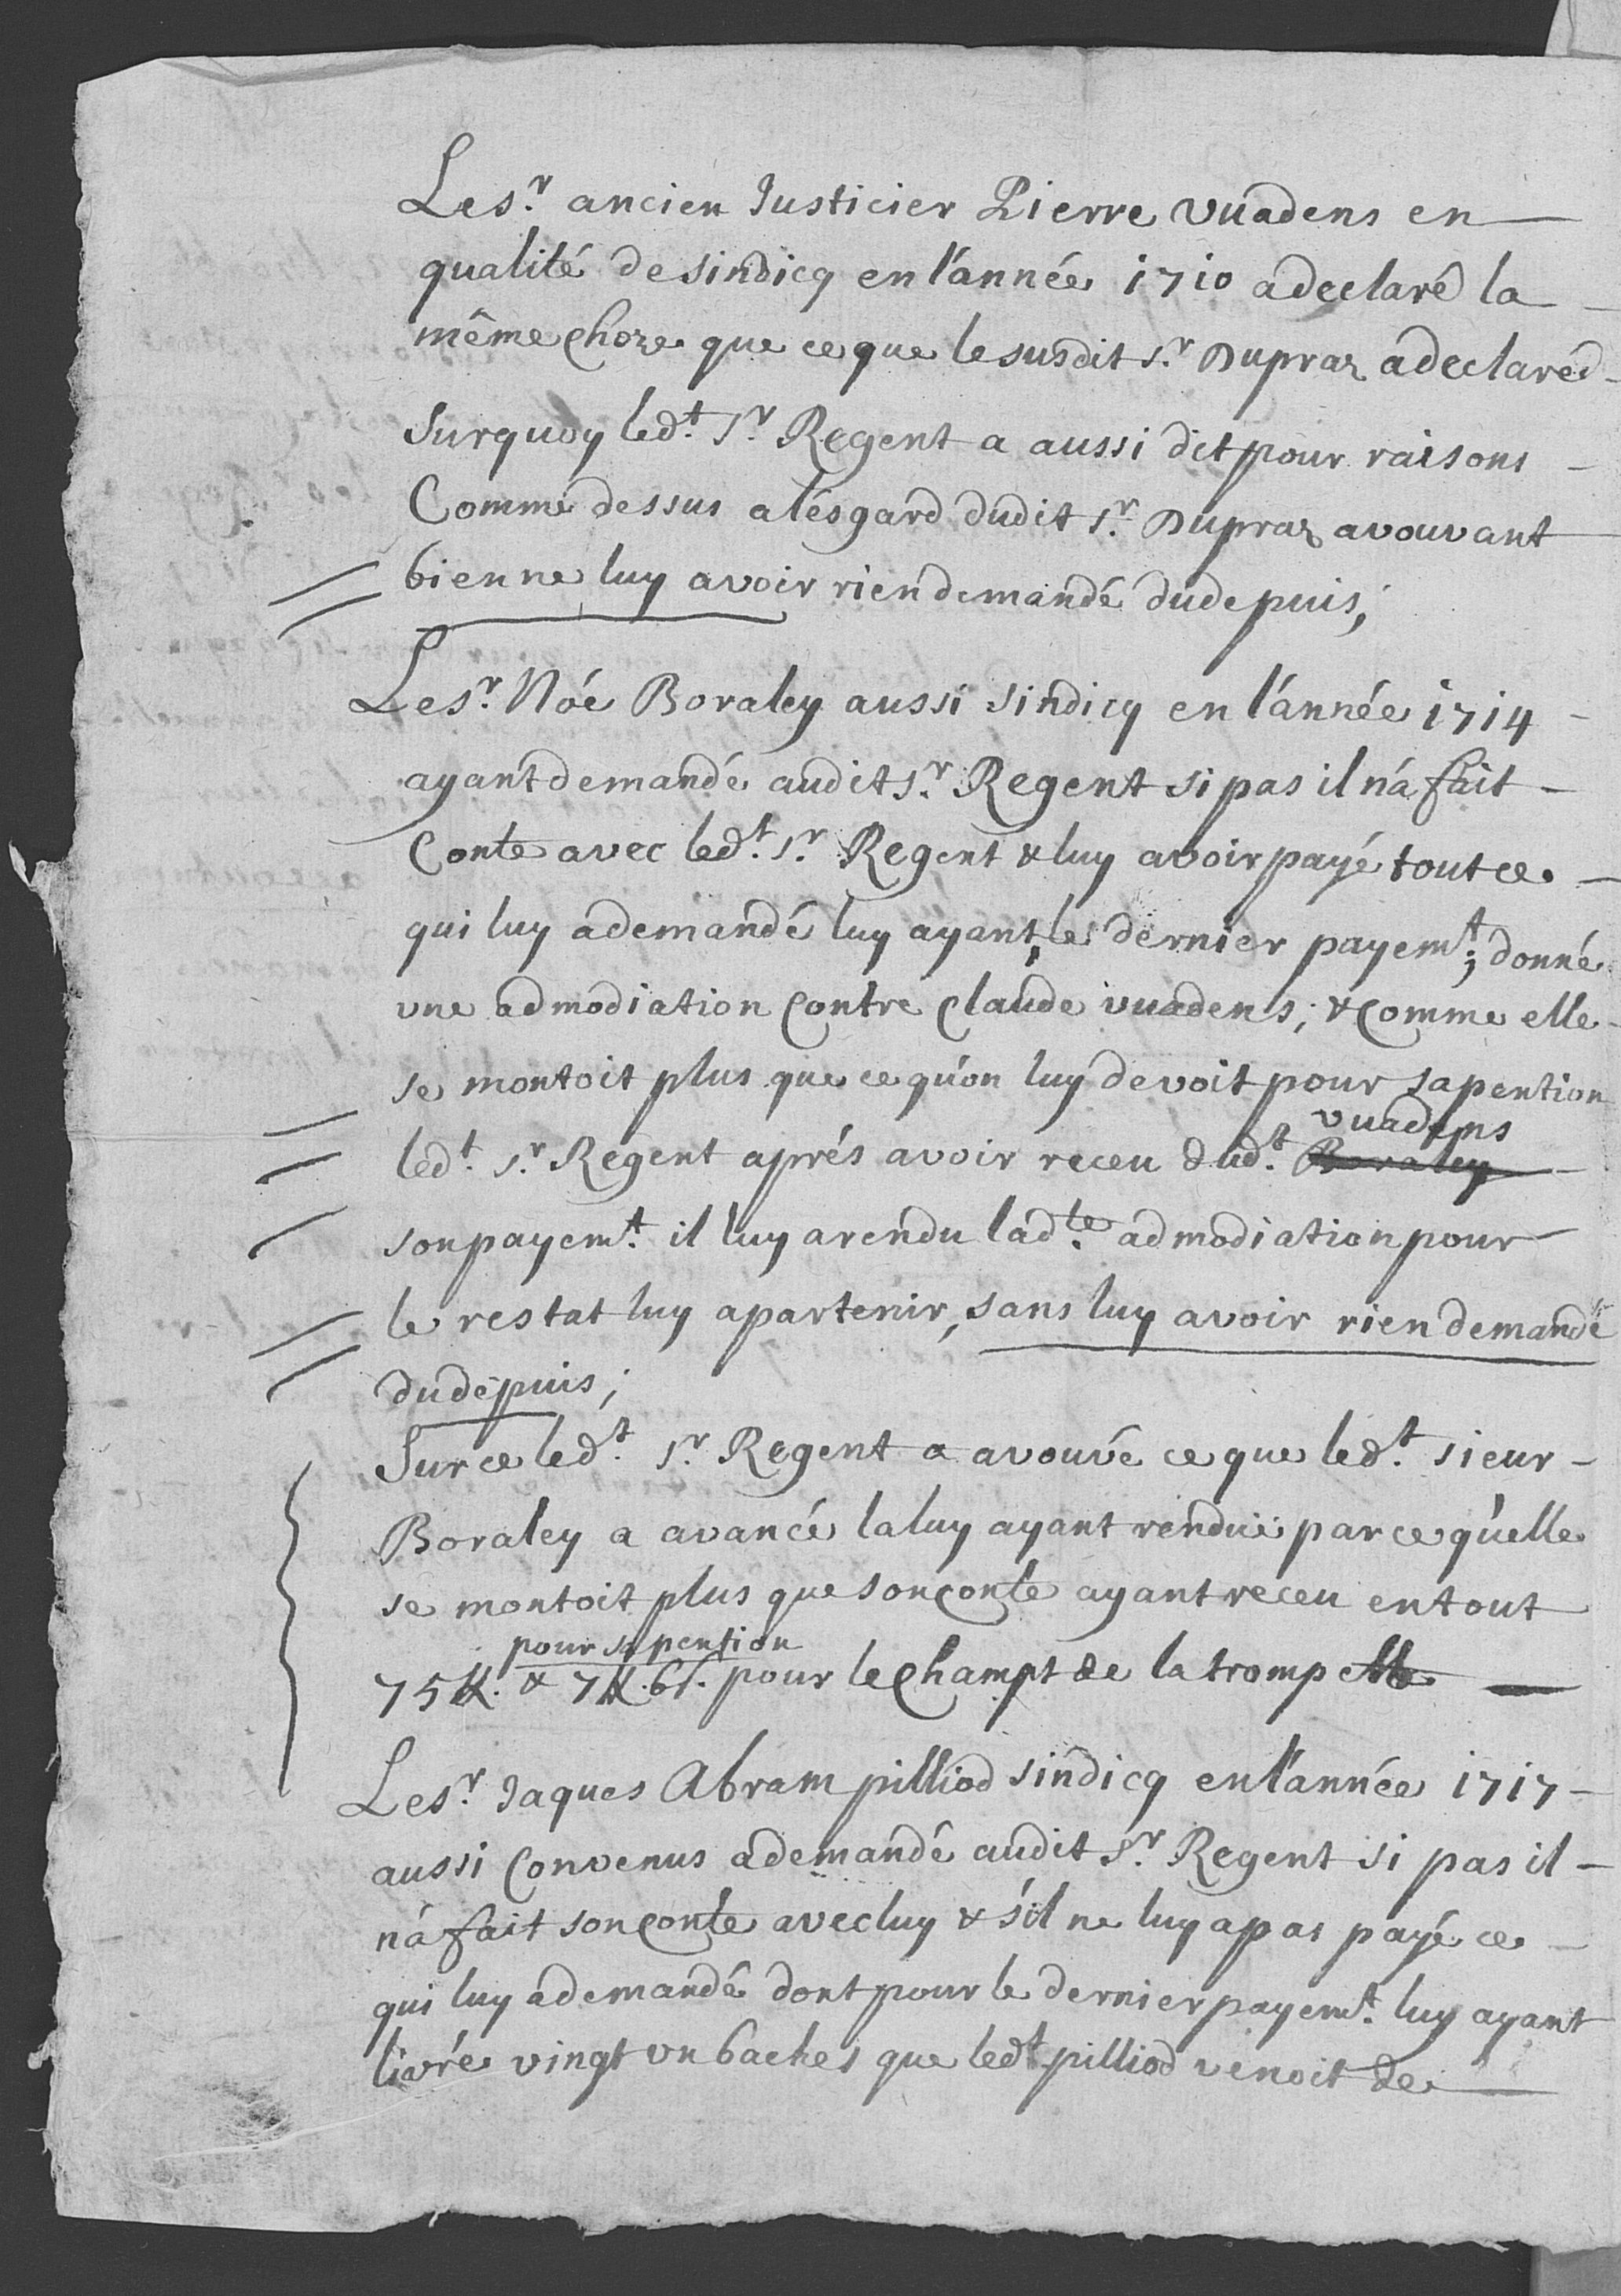 Le sr. ancien Justicier Pierre Vuadens en
qualité de sindicq en l'année 1710 a declaré la
même choze que ce que le susdit sr. Dupraz a declaré
Surquoy led.t Sr. Regent a aussi dit pour raisons
Comme dessus a lésgard dudit sr. Dupraz avouvant
bien ne luy avoir rien demandé dudepuis;
Le sr. Nöé Boraley aussi sindicq en l'année 1714
ayant demandé audit sr. Regent si pas il n'a fait
Conte avec led.t sr. Regent & luy avoir payé tout ce
qui luy a demandé luy ayant, le dernier payem.t; donné
une admodiation Contre Claude vuadens; & Comme elle
se montoit plus que ce qu'on luy devoit pour sa pention
vuadens
led.t sr. Regent aprés avoir receu dud.t Boraley
son payem.t il luy a rendu lad.te admodiation pour
le restat luy apartenir, sans luy avoir rien demandé
dudepuis;
Sur ce led.t sr. Regent a avouvé ce que led.t sieur
Boraley a avancé la luy ayant renduë parce qu'elle
se montoit plus que son conte ayant receu en tout
pour sa pention
75 & 7 6s. pour le Champt de la trompette
Le sr. Jaques Abram pilliod sindicq en l'année 1717
aussi Convenus a demandé audit Sr. Regent si pas il
n'a fait son Conte avec luy & s'il ne luy a pas payé ce
qui luy a demandé dont pour le dernier payem.t luy ayant
livré vingt un baches que led.t pilliod venoit de